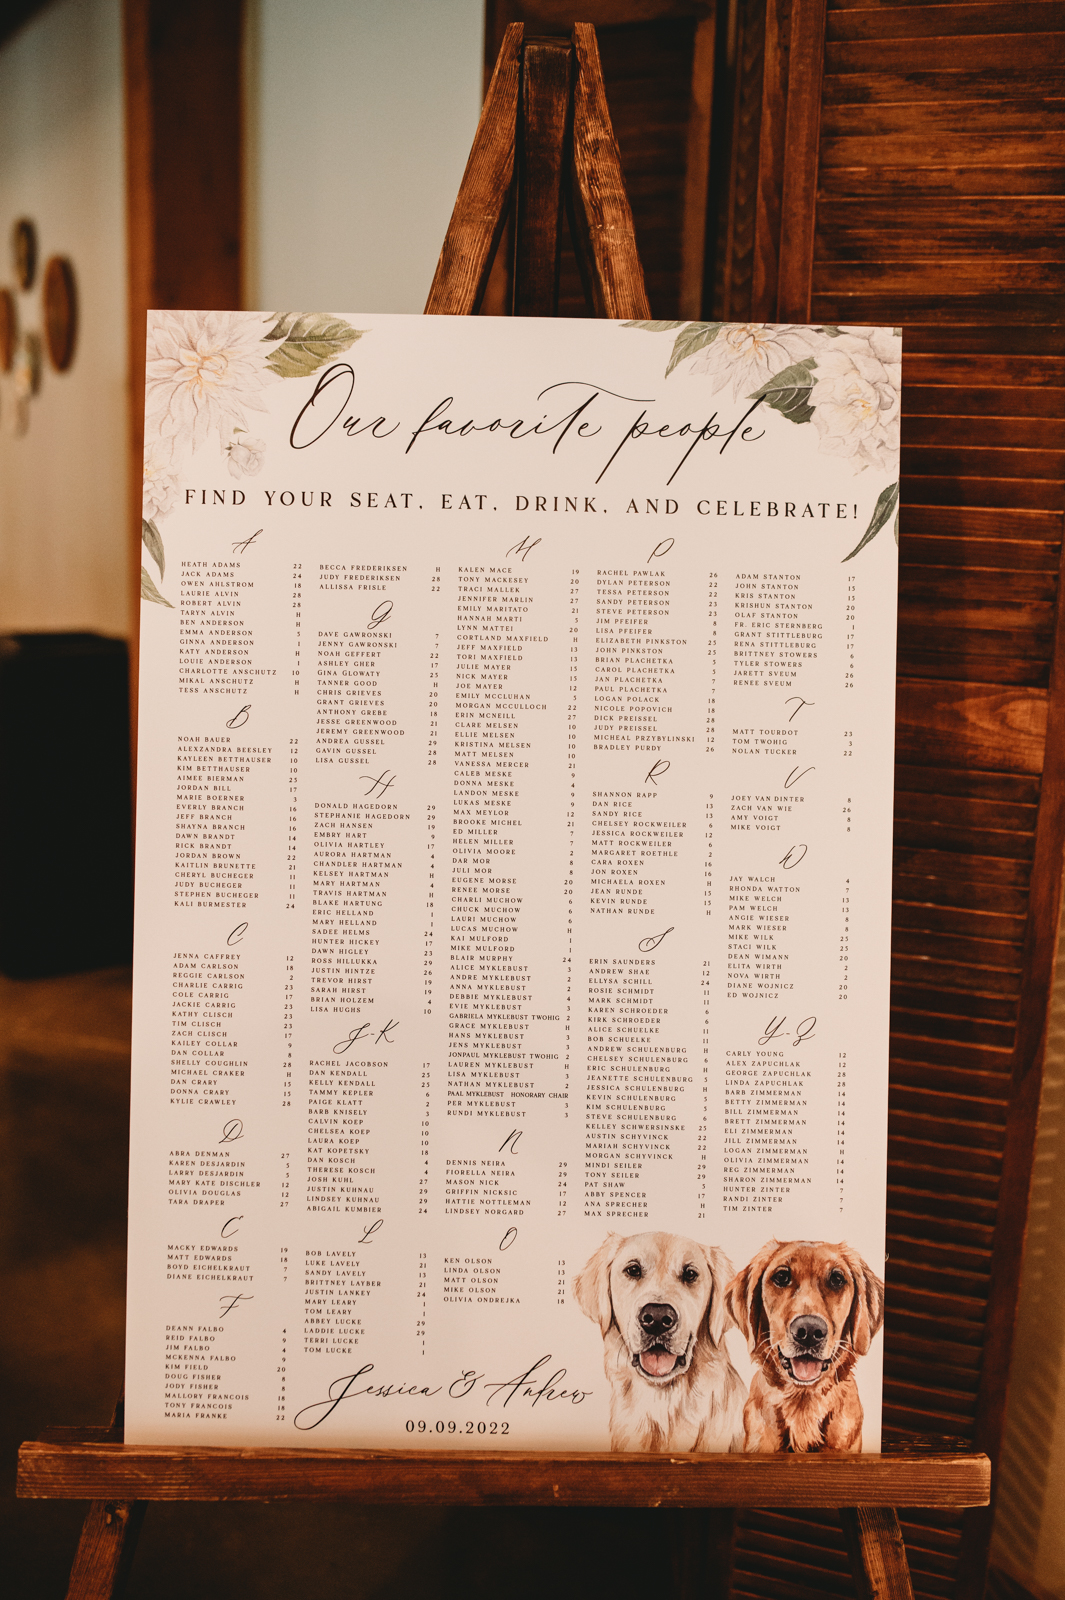 Our favorite people
FIND YOUR SEAT, EAT, DRINK, AND CELEBRATE!
A
HEATH ADAMS 22
JACK ADAMS 24
OWEN AHLSTROM 18
LAURIE ALVIN 28
ROBERT ALVIN 28
TARYN ALVIN H
BEN ANDERSON H
EMMA ANDERSON 5
GINNA ANDERSON 1
KATY ANDERSON H
LOUIE ANDERSON 1
CHARLOTTE ANSCHUTZ 10
MIKAL ANSCHUTZ H
TESS ANSCHUTZ H
B
NOAH BAUER 22
ALEXZANDRA BEESLEY 12
KAYLEEN BETTHAUSER 10
KIM BETTHAUSER 10
AIMEE BIERMAN 25
JORDAN BILL 17
MARIE BOERNER 3
EVERLY BRANCH 16
JEFF BRANCH 16
SHAYNA BRANCH 16
DAWN BRANDT 14
RICK BRANDT 14
JORDAN BROWN 22
KAITLIN BRUNETTE 21
CHERYL BUCHEGER 11
JUDY BUCHEGER 11
STEPHEN BUCHEGER 11
KALI BURMESTER 24
C
JENNA CAFFREY 12
ADAM CARLSON 18
REGGIE CARLSON 2
CHARLIE CARRIG 23
COLE CARRIG 17
JACKIE CARRIG 23
KATHY CLISCH 23
TIM CLISCH 23
ZACH CLISCH 17
KAILEY COLLAR 9
DAN COLLAR 8
SHELLY COUGHLIN 28
MICHAEL CRAKER H
DAN CRARY 15
DONNA CRARY 15
KYLIE CRAWLEY 28
D
ABRA DENMAN 27
KAREN DESJARDIN 5
LARRY DESJARDIN 5
MARY KATE DISCHLER 12
OLIVIA DOUGLAS 12
TARA DRAPER 27
E
MACKY EDWARDS 19
MATT EDWARDS 18
BOYD EICHELKRAUT 7
DIANE EICHELKRAUT 7
F
DEANN FALBO 4
REID FALBO 9
JIM FALBO 4
MCKENNA FALBO 9
KIM FIELD 20
DOUG FISHER 8
JODY FISHER 8
MALLORY FRANCOIS 18
TONY FRANCOIS 18
MARIA FRANKE 22
BECCA FREDERIKSEN H
JUDY FREDERIKSEN 28
ALLISSA FRISLE 22
G
DAVE GAWRONSKI 7
JENNY GAWRONSKI 7
NOAH GEFFERT 22
ASHLEY GHER 17
GINA GLOWATY 25
TANNER GOOD H
CHRIS GRIEVES 20
GRANT GRIEVES 20
ANTHONY GREBE 18
JESSE GREENWOOD 21
JEREMY GREENWOOD 21
ANDREA GUSSEL 29
GAVIN GUSSEL 28
LISA GUSSEL 28
H
DONALD HAGEDORN 29
STEPHANIE HAGEDORN 29
ZACH HANSEN 19
EMBRY HART 9
OLIVIA HARTLEY 17
AURORA HARTMAN 4
CHANDLER HARTMAN 4
KELSEY HARTMAN H
MARY HARTMAN 4
TRAVIS HARTMAN H
BLAKE HARTUNG 18
ERIC HELLAND 1
MARY HELLAND 1
SADEE HELMS 24
HUNTER HICKEY 17
DAWN HIGLEY 23
ROSS HILLUKKA 29
JUSTIN HINTZE 26
TREVOR HIRST 19
SARAH HIRST 19
BRIAN HOLZEM 4
LISA HUGHS 10
J-K
RACHEL JACOBSON 17
DAN KENDALL 25
KELLY KENDALL 25
TAMMY KEPLER 6
PAIGE KLATT 2
BARB KNISELY 3
CALVIN KOEP 10
CHELSEA KOEP 10
LAURA KOEP 10
KAT KOPETSKY 18
DAN KOSCH 4
THERESE KOSCH 4
JOSH KUHL 27
JUSTIN KUHNAU 29
LINDSEY KUHNAU 29
ABIGAIL KUMBIER 24
L
BOB LAVELY 13
LUKE LAVELY 21
SANDY LAVELY 13
BRITTNEY LAYBER 21
JUSTIN LANKEY 24
MARY LEARY 1
TOM LEARY 1
ABBEY LUCKE 29
LADDIE LUCKE 29
TERRI LUCKE 1
TOM LUCKE 1
M
KALEN MACE 19
TONY MACKESEY 20
TRACI MALLEK 27
JENNIFER MARLIN 27
EMILY MARITATO 21
HANNAH MARTI 5
LYNN MATTEI 20
CORTLAND MAXFIELD H
JEFF MAXFIELD 13
TORI MAXFIELD 13
JULIE MAYER 15
NICK MAYER 15
JOE MAYER 12
EMILY MCCLUHAN 5
MORGAN MCCULLOCH 22
ERIN MCNEILL 27
CLARE MELSEN 10
ELLIE MELSEN 10
KRISTINA MELSEN 10
MATT MELSEN 10
VANESSA MERCER 21
CALEB MESKE 9
DONNA MESKE 4
LANDON MESKE 9
LUKAS MESKE 9
MAX MEYLOR 12
BROOKE MICHEL 21
ED MILLER 7
HELEN MILLER 7
OLIVIA MOORE 2
DAR MOR 8
JULI MOR 8
EUGENE MORSE 20
RENEE MORSE 20
CHARLI MUCHOW 6
CHUCK MUCHOW 6
LAURI MUCHOW 6
LUCAS MUCHOW H
KAI MULFORD 1
MIKE MULFORD 1
BLAIR MURPHY 24
ALICE MYKLEBUST 3
ANDRE MYKLEBUST 2
ANNA MYKLEBUST 2
DEBBIE MYKLEBUST 4
EVIE MYKLEBUST 3
GABRIELA MYKLEBUST TWOHIG 2
GRACE MYKLEBUST H
HANS MYKLEBUST 3
JENS MYKLEBUST 3
JONPAUL MYKLEBUST TWOHIG 2
LAUREN MYKLEBUST H
LISA MYKLEBUST 3
NATHAN MYKLEBUST 2
PAAL MYKLEBUST HONORARY CHAIR
PER MYKLEBUST 3
RUNDI MYKLEBUST 3
N
DENNIS NEIRA 29
FIORELLA NEIRA 29
MASON NICK 24
GRIFFIN NICKSIC 17
HATTIE NOTTLEMAN 12
LINDSEY NORGARD 27
O
KEN OLSON 13
LINDA OLSON 13
MATT OLSON 21
MIKE OLSON 21
OLIVIA ONDREJKA 18
P
RACHEL PAWLAK 26
DYLAN PETERSON 22
TESSA PETERSON 22
SANDY PETERSON 23
STEVE PETERSON 23
JIM PFEIFER 8
LISA PFEIFER 8
ELIZABETH PINKSTON 25
JOHN PINKSTON 25
BRIAN PLACHETKA 5
CAROL PLACHETKA 5
JAN PLACHETKA 7
PAUL PLACHETKA 7
LOGAN POLACK 18
NICOLE POPOVICH 18
DICK PREISSEL 28
JUDY PREISSEL 28
MICHEAL PRZYBYLINSKI 12
BRADLEY PURDY 26
R
SHANNON RAPP 9
DAN RICE 13
SANDY RICE 13
CHELSEY ROCKWEILER 6
JESSICA ROCKWEILER 12
MATT ROCKWEILER 6
MARGARET ROETHLE 2
CARA ROXEN 16
JON ROXEN 16
MICHAELA ROXEN H
JEAN RUNDE 15
KEVIN RUNDE 15
NATHAN RUNDE H
S
ERIN SAUNDERS 21
ANDREW SHAE 12
ELLYSA SCHILL 24
ROSIE SCHMIDT 11
MARK SCHMIDT 11
KAREN SCHROEDER 6
KIRK SCHROEDER 6
ALICE SCHUELKE 11
BOB SCHUELKE 11
ANDREW SCHULENBURG H
CHELSEY SCHULENBURG 6
ERIC SCHULENBURG H
JEANETTE SCHULENBURG 5
JESSICA SCHULENBURG H
KEVIN SCHULENBURG 5
KIM SCHULENBURG 5
STEVE SCHULENBURG 6
KELLEY SCHWERSINSKE 25
AUSTIN SCHYVINCK 22
MARIAH SCHYVINCK 22
MORGAN SCHYVINCK H
MINDI SEILER 29
TONY SEILER 29
PAT SHAW 5
ABBY SPENCER 17
ANA SPRECHER H
MAX SPRECHER 21
ADAM STANTON 17
JOHN STANTON 15
KRIS STANTON 15
KRISHUN STANTON 20
OLAF STANTON 20
FR. ERIC STERNBERG 1
GRANT STITTLEBURG 17
RENA STITTLEBURG 17
BRITTNEY STOWERS 6
TYLER STOWERS 6
JARETT SVEUM 26
RENEE SVEUM 26
T
MATT TOURDOT 23
TOM TWOHIG 3
NOLAN TUCKER 22
V
JOEY VAN DINTER 8
ZACH VAN WIE 26
AMY VOIGT 8
MIKE VOIGT 8
W
JAY WALCH 4
RHONDA WATTON 7
MIKE WELCH 13
PAM WELCH 13
ANGIE WIESER 8
MARK WIESER 8
MIKE WILK 25
STACI WILK 25
DEAN WIMANN 20
ELITA WIRTH 2
NOVA WIRTH 2
DIANE WOJNICZ 20
ED WOJNICZ 20
Y-Z
CARLY YOUNG 12
ALEX ZAPUCHLAK 12
GEORGE ZAPUCHLAK 28
LINDA ZAPUCHLAK 28
BARB ZIMMERMAN 14
BETTY ZIMMERMAN 14
BILL ZIMMERMAN 14
BRETT ZIMMERMAN 14
ELI ZIMMERMAN 14
JILL ZIMMERMAN 14
LOGAN ZIMMERMAN H
OLIVIA ZIMMERMAN 14
REG ZIMMERMAN 14
SHARON ZIMMERMAN 14
HUNTER ZINTER 7
RANDI ZINTER 7
TIM ZINTER 7
Jessica & Andrew
09.09.2022